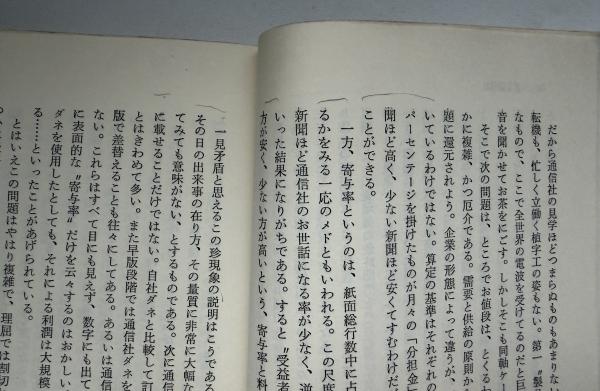 だから通信社の見学ほどつまらぬものもあまりな
転機も、忙しく立働く植字工の姿もない。第一〝
なもので、ここで全世界の電波を受けてるのだと巨
音を聞かせてお茶をにごす。しかしそこも同軸ケー
そこで次の問題は、ところでお値段は、とくる
かに複雑、かつ厄介である。需要と供給の原則か
題に還元されよう。企業の形態によって違うが、
いているわけではない。算定の基準はそれぞれの
パーセンテージを掛けたものが月々の「分担金」
聞ほど高く、少ない新聞ほど安くてすむわけだ
ことができる。
一方、寄与率というのは、紙面総行数中に占
るかをみる一応のメドともいわれる。この尺度
新聞ほど通信社のお世話になる率が少なく、逆
いった結果になりがちである。すると〝受益者
方が安く、少ない方が高いという、寄与率と料
一見矛盾と思えるこの珍現象の説明はこうである
その日の出来事の在り方、その量質に非常に大幅な
てみても意味がない、とするものである。次に通信
に載せることだけではない。自社ダネと比較して訂
とはきわめて多い。また早版段階では通信社ダネを
版で差替えることも往々にしてある。あるいは通信
ない。これらはすべて目にも見えず、数字にも出て
に表面的な〝寄与率〟だけを云々するのはおかしい、
ダネを使用したとしても、それによる利潤は大規模
る……といったことがあげられている。
とはいえこの問題はやはり複雑で、理屈では割切